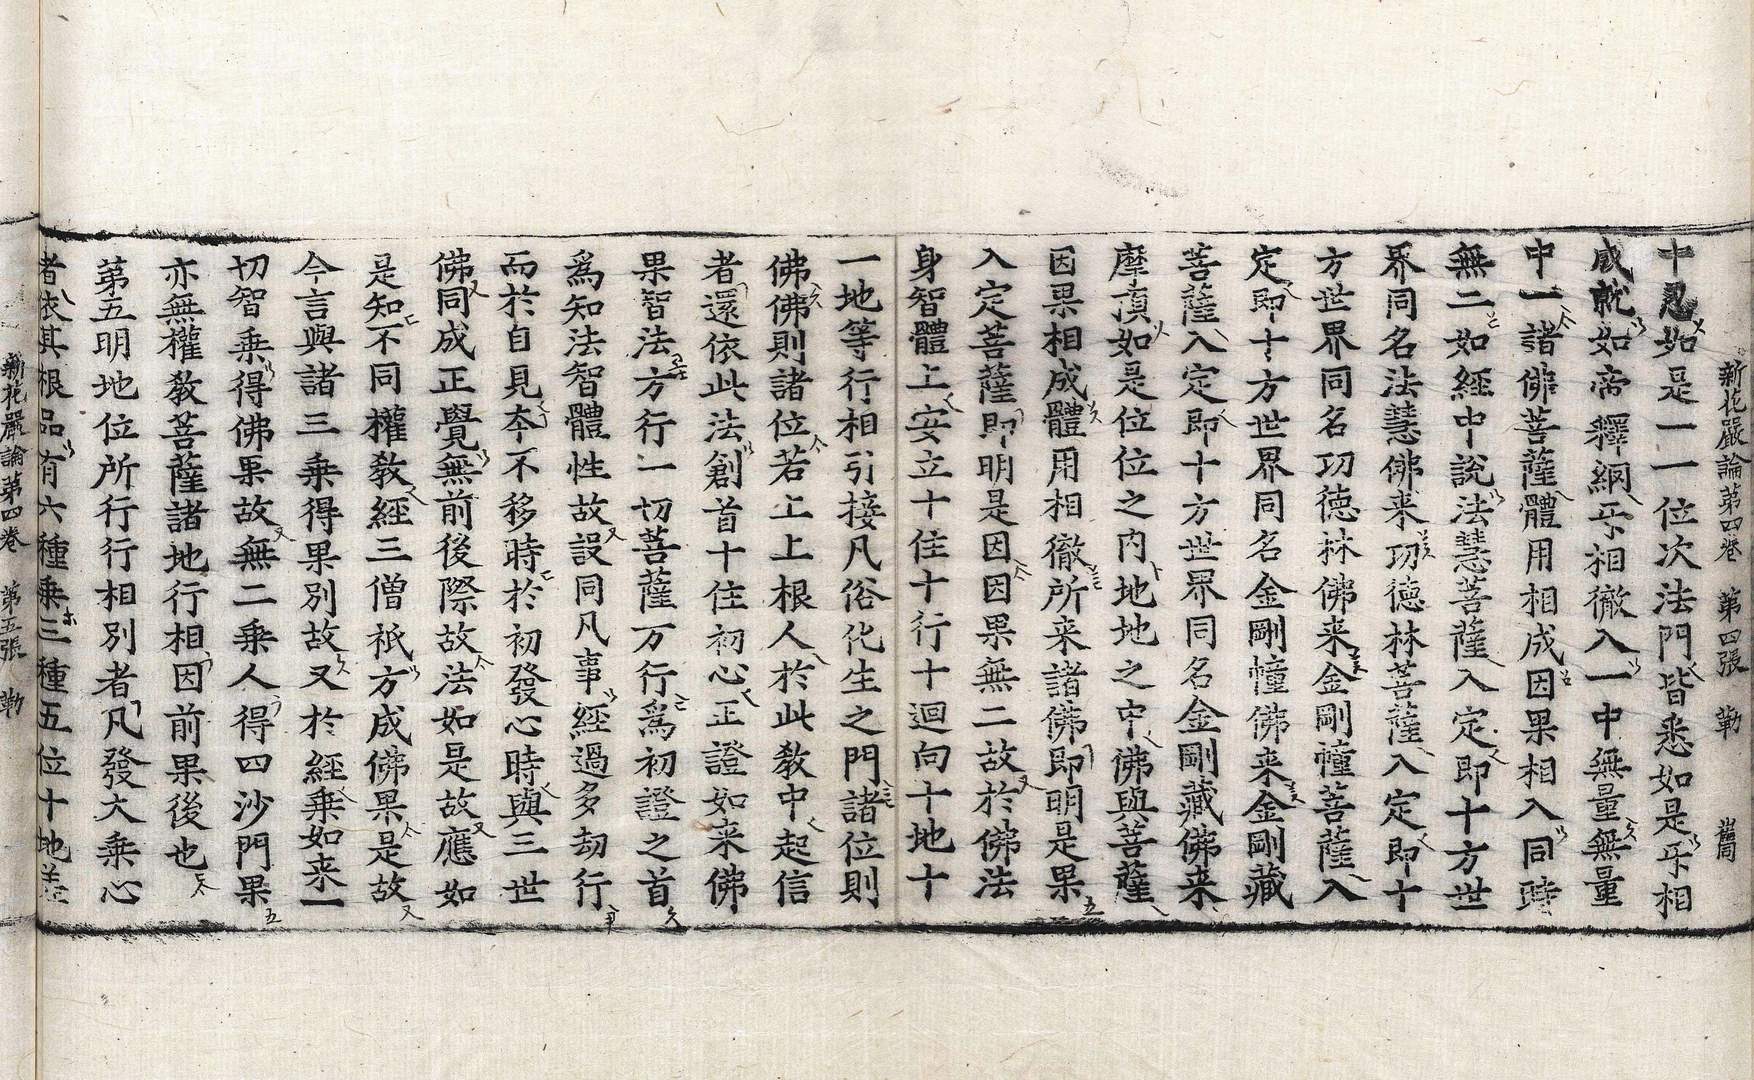 新花嚴論第四卷 第四張 勒
十忍如是一一位次法門皆悉如是乑相
成就如帝釋網乑相徹入一中無量無量
中一諸佛菩薩體用相成因果相入同時
無二如經中說法慧菩薩入定即十方世
界同名法慧佛来功德林菩薩入定即十
方世界同名功德林佛来金剛幢菩薩入
定即十方世界同名金剛幢佛来金剛藏
菩薩入定即十方世界同名金剛藏佛来
摩頂如是位位之內地地之中佛與菩薩
因果相成體用相徹所来諸佛即明是果
入定菩薩即明是因因果無二故於佛法
身智體上安立十住十行十迴向十地十
一地等行相引接凡俗化生之門諸位則
佛佛則諸位若上上根人於此教中起信
者還依此法創首十住初心正證如来佛
果智法方行一切菩薩万行爲初證之首
爲知法智體性故設同凡事經過多劫行
而於自見夲不移時於初發心時與三世
佛同成正覺無前後際故法如是故應如
是知不同權教經三僧祇方成佛果是故
今言與諸三乘得果別故又於經乘如来一
切智乘得佛果故無二乘人得四沙門果
亦無權教菩薩諸地行相因前果後也
第五明地位所行行相別者凡發大乘心
者依其根品有六種乘三種五位十地差
新花嚴論第四卷 第五張 勒